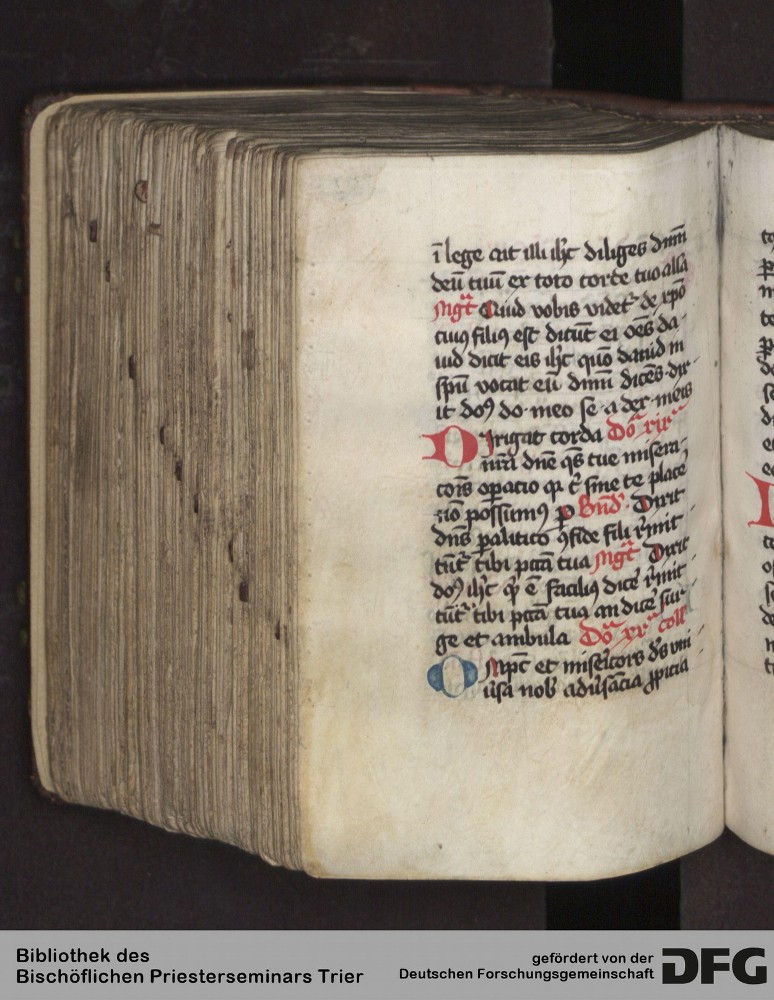 ī lege ait illi ih̄c diliges dnm̄
deū tuū ex toto corde tuo alla
Mgt̄ Quid vobis videt᷑ de xp̄o
cuiꝰ filiꝰ est dicūt ei oēs da-
uid dicit eis ih̄c quō dauid in
spū vocat eū dnm̄ dicēs dix-
it doꝰ do meo se a dex meis
Dirigat corda Dō xix
nrā dnē qs̄ tue misera-
cōis oꝑatio qꝛ t᷑ sine te place-
re nō possumꝰ ꝑ Bnd᷑ Dixit
dns̄ ꝑalitico ꝯfide fili r̄mit-
tūt᷑ tibi pctā tua Mgt̄ Dixit
doꝰ ih̄c qͥ ē faciliꝰ dice᷑ r̄mit-
tūt᷑ tibi pctā tua an dice᷑ sur-
ge et ambula Dō xx coll
Omp̄c et miserīcors ds̄ vni-
u᷑sa nob᷑ adu᷑sācia ꝓpicia
Bibliothek des
Bischöflichen Priesterseminars Trier
gefördert von der
Deutschen Forschungsgemeinschaft
DFG